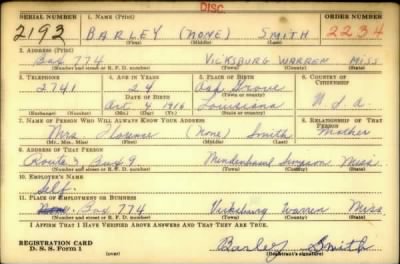 DISC.
SERIAL NUMBER 1. NAME (Print) ORDER NUMBER
2193 BARLEY (NONE) SMITH 2234
(First) (Middle) (Last)
2. ADDRESS (Print)
Box 774 VICKSBURG WARREN MISS
(Number and street or R. F. D. number) (Town) (County) (State)
3. TELEPHONE 4. AGE IN YEARS 5. PLACE OF BIRTH 6. COUNTRY OF CITIZENSHIP
2741 24 Oak Grove
DATE OF BIRTH (Town)
Oct 4 1916 Louisiana U.S.A.
(Mo.) (Day) (Yr.) (State or country)
7. NAME OF PERSON WHO WILL ALWAYS KNOW YOUR ADDRESS 8. RELATIONSHIP OF THAT PERSON
Mrs. Florence (None) Smith Mother
(Mr., Mrs., Miss) (First) (Middle) (Last)
9. ADDRESS OF THAT PERSON
Route 3 Box 9 Mendenhall Simpson Miss.
(Number and street or R. F. D. number) (Town) (County) (State)
10. EMPLOYER'S NAME
Self.
11. PLACE OF EMPLOYMENT OR BUSINESS
Box 774 Vicksburg Warren Miss.
(Number and street or R. F. D. number) (Town) (County) (State)
I AFFIRM THAT I HAVE VERIFIED ABOVE ANSWERS AND THAT THEY ARE TRUE.
REGISTRATION CARD
D. S. S. Form 1 (over) Barley Smith
(Registrant's signature)